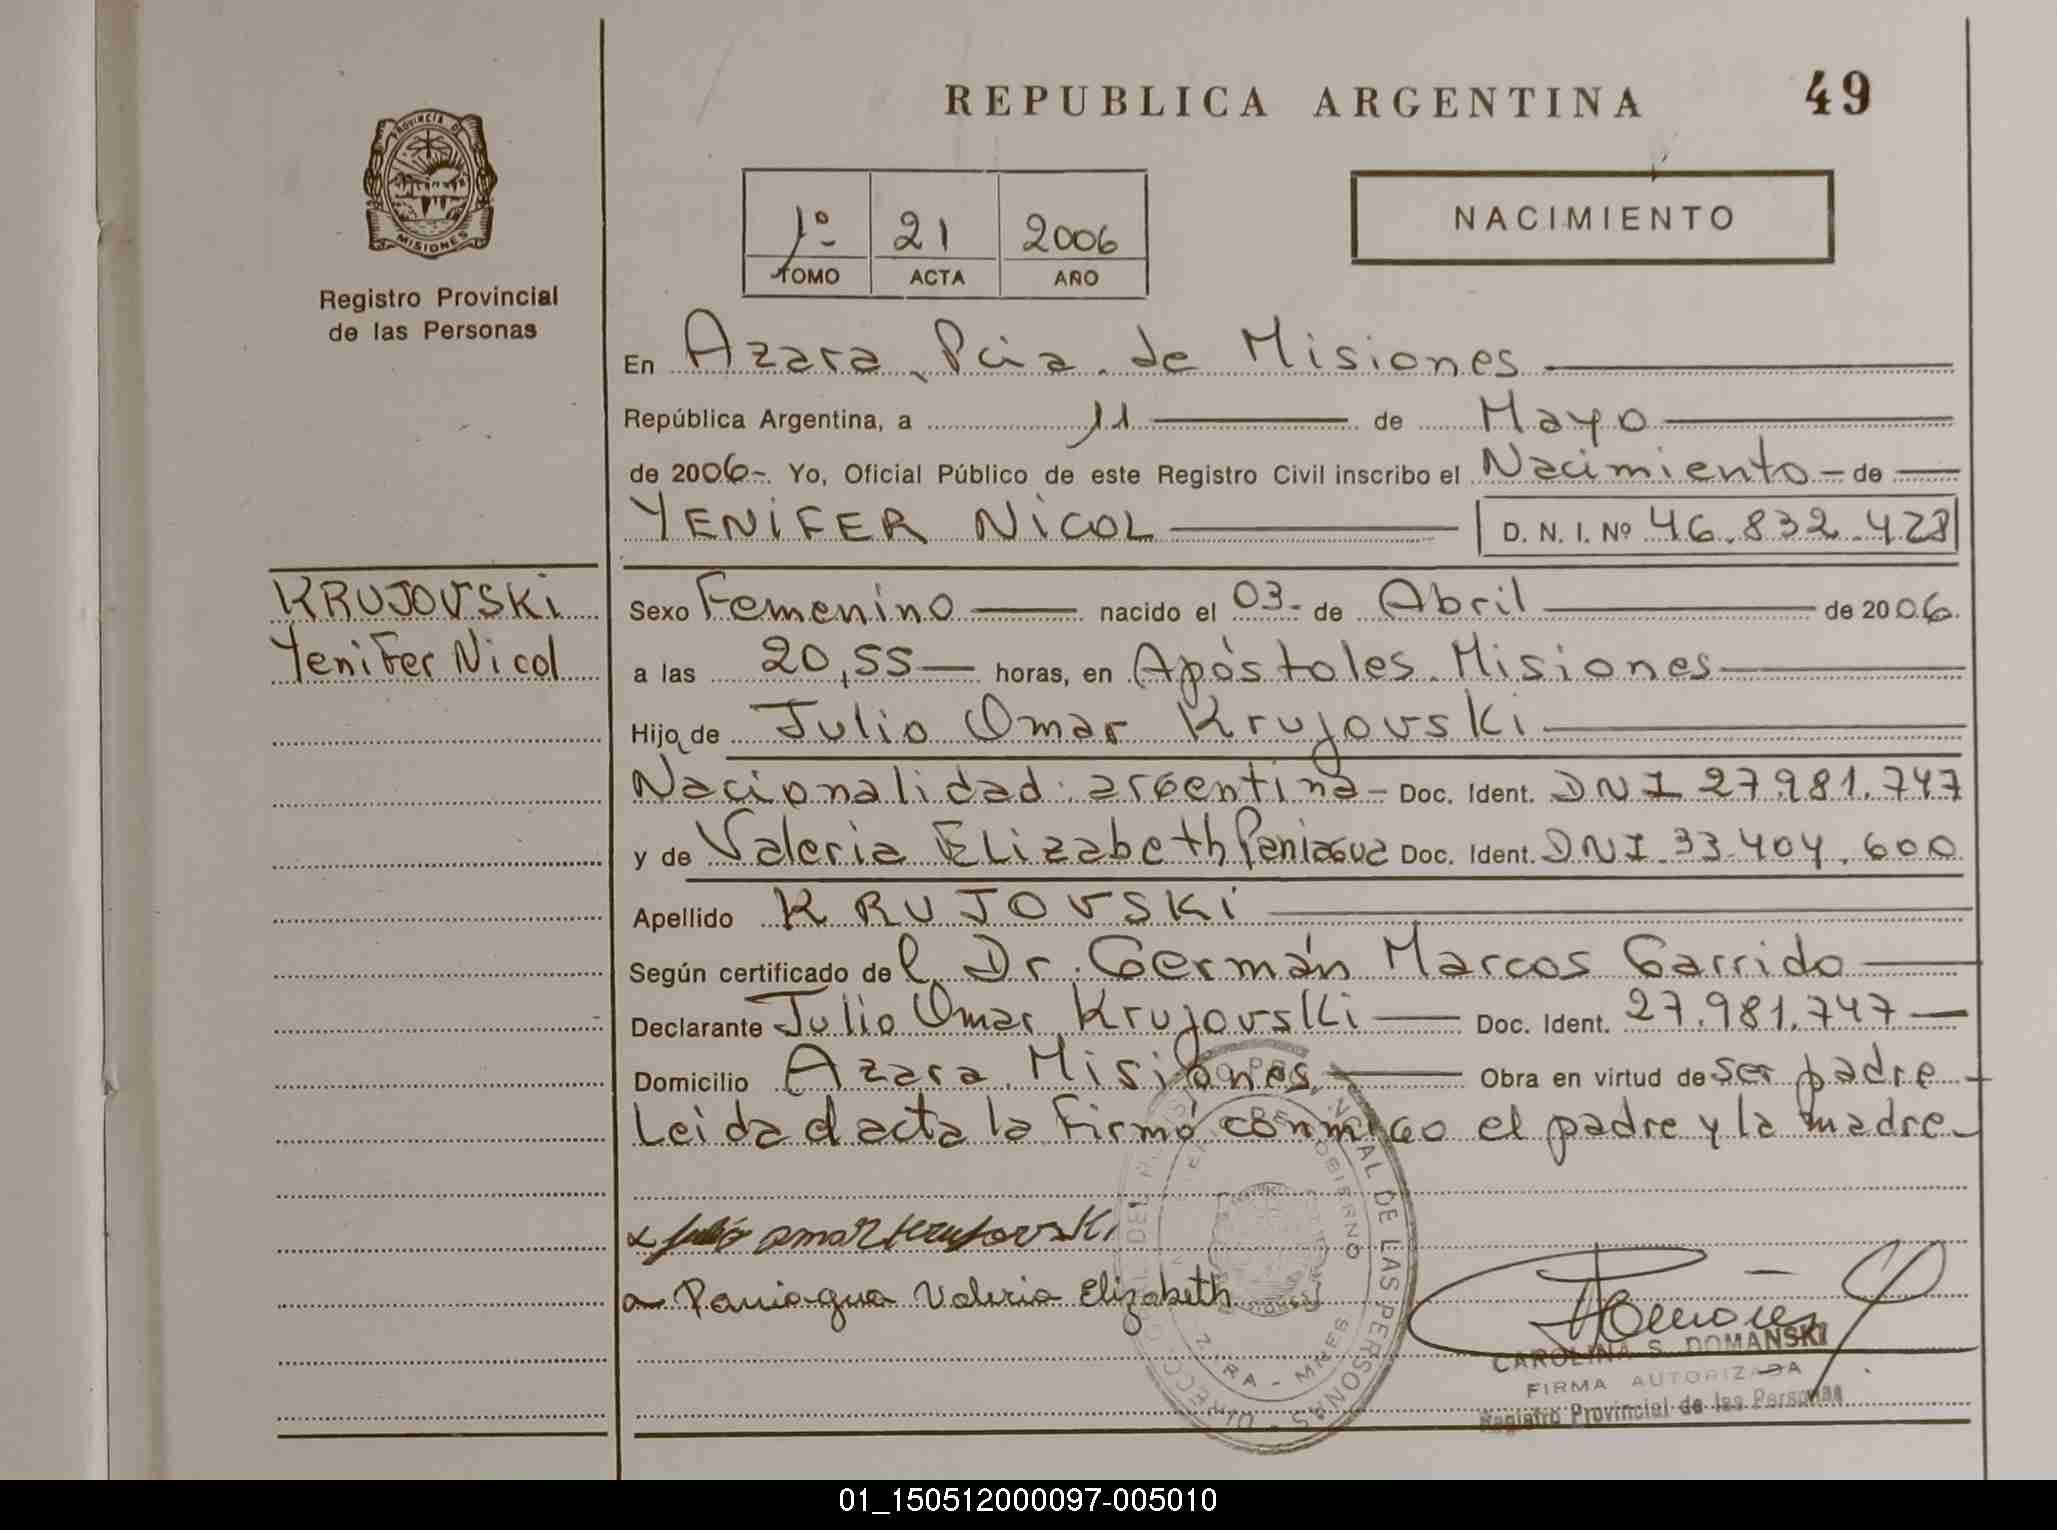 REPUBLICA ARGENTINA 49
PROVINCIA DE
MISIONES
Registro Provincial
de las Personas
1º 21 2006
TOMO ACTA AÑO
NACIMIENTO
En Azara, Pcia. de Misiones
República Argentina, a 11 de Mayo
de 2006-. Yo, Oficial Público de este Registro Civil inscribo el Nacimiento - de
YENIFER NICOL D. N. I. Nº 46.832.428
KRUJOVSKI
Yenifer Nicol
Sexo Femenino nacido el 03- de Abril de 2006.
a las 20,55 horas, en Apóstoles. Misiones
Hijo de Julio Omar Krujovski
Nacionalidad: argentina - Doc. Ident. DNI 27.981.747
y de Valeria Elizabeth Paniagua Doc. Ident. DNI 33.404.600
Apellido KRUJOVSKI
Según certificado del Dr. Germán Marcos Garrido
Declarante Julio Omar Krujovski Doc. Ident. 27.981.747
Domicilio Azara. Misiones Obra en virtud de ser padre -
Leida el acta la firmó conmigo el padre y la madre -
omar Krujovski
Paniagua Valeria Elizabeth
CAROLINA S. DOMANSKI
FIRMA AUTORIZADA
Registro Provincial de las Personas
DE LAS PERSONAS
GOBIERNO
01_150512000097-005010